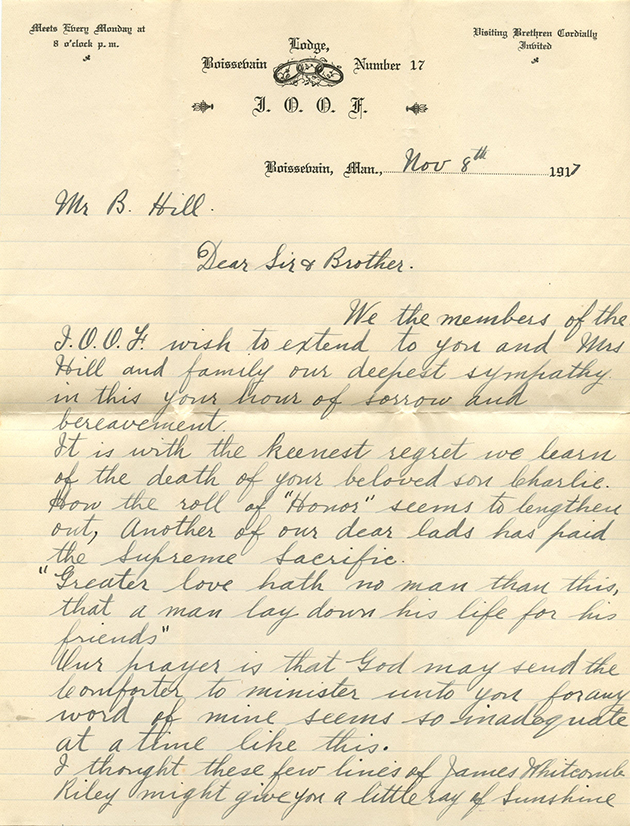 Meets Every Monday at
8 o'clock p. m.
Visiting Brethren Cordially
Invited
Lodge,
Boissevain Number 17
I. O. O. F.
Boissevain, Man., Nov 8th 1917
Mr B. Hill.
Dear Sir & Brother.
We the members of the
I.O.O.F. wish to extend to you and Mrs
Hill and family our deepest sympathy
in this your hour of sorrow and
bereavement.
It is with the keenest regret we learn
of the death of your beloved son Charlie.
How the roll of "Honor" seems to lengthen
out, Another of our dear lads has paid
the Supreme Sacrific.
"Greater love hath no man than this,
that a man lay down his life for his
friends"
Our prayer is that God may send the
Comforter to minister unto you for any
word of mine seems so inadequate
at a time like this.
I thought these few lines of James Whitcomb
Riley might give you a little ray of Sunshine